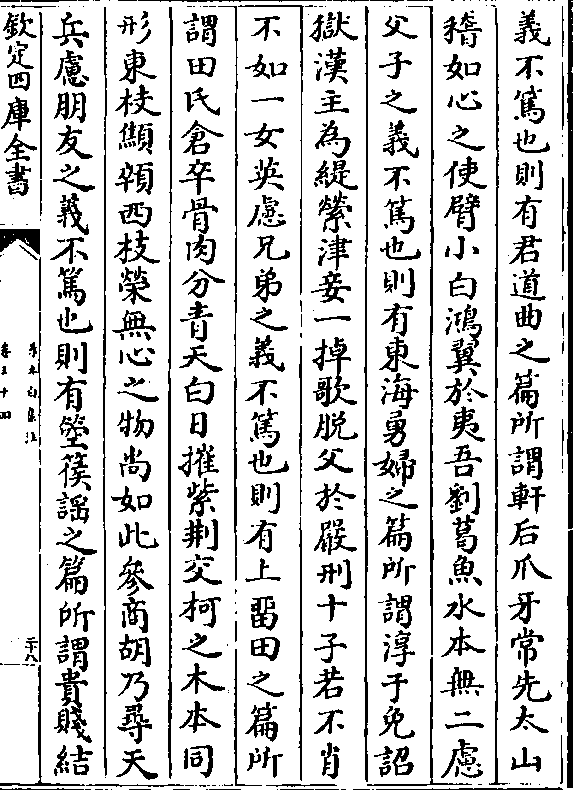 義不篤也則有君道曲之篇所謂軒后爪牙常先太山
稽如心之使臂小白鴻翼於夷吾劉葛魚水本無二慮
父子之義不篤也則有東海勇婦之篇所謂淳于免詔
獄漢主為緹縈津妾一掉歌脱父於嚴刑十子若不肖
不如一女英慮兄弟之義不篤也則有上留田之篇所
謂田氏倉卒骨肉分青天白日摧紫荆交柯之木本同
形東枝顦顇西枝榮無心之物尚如此參商胡乃尋天
兵慮朋友之義不篤也則有箜篌謡之篇所謂貴賤結
欽定四庫全書
李太白集注
卷三十四
二十八